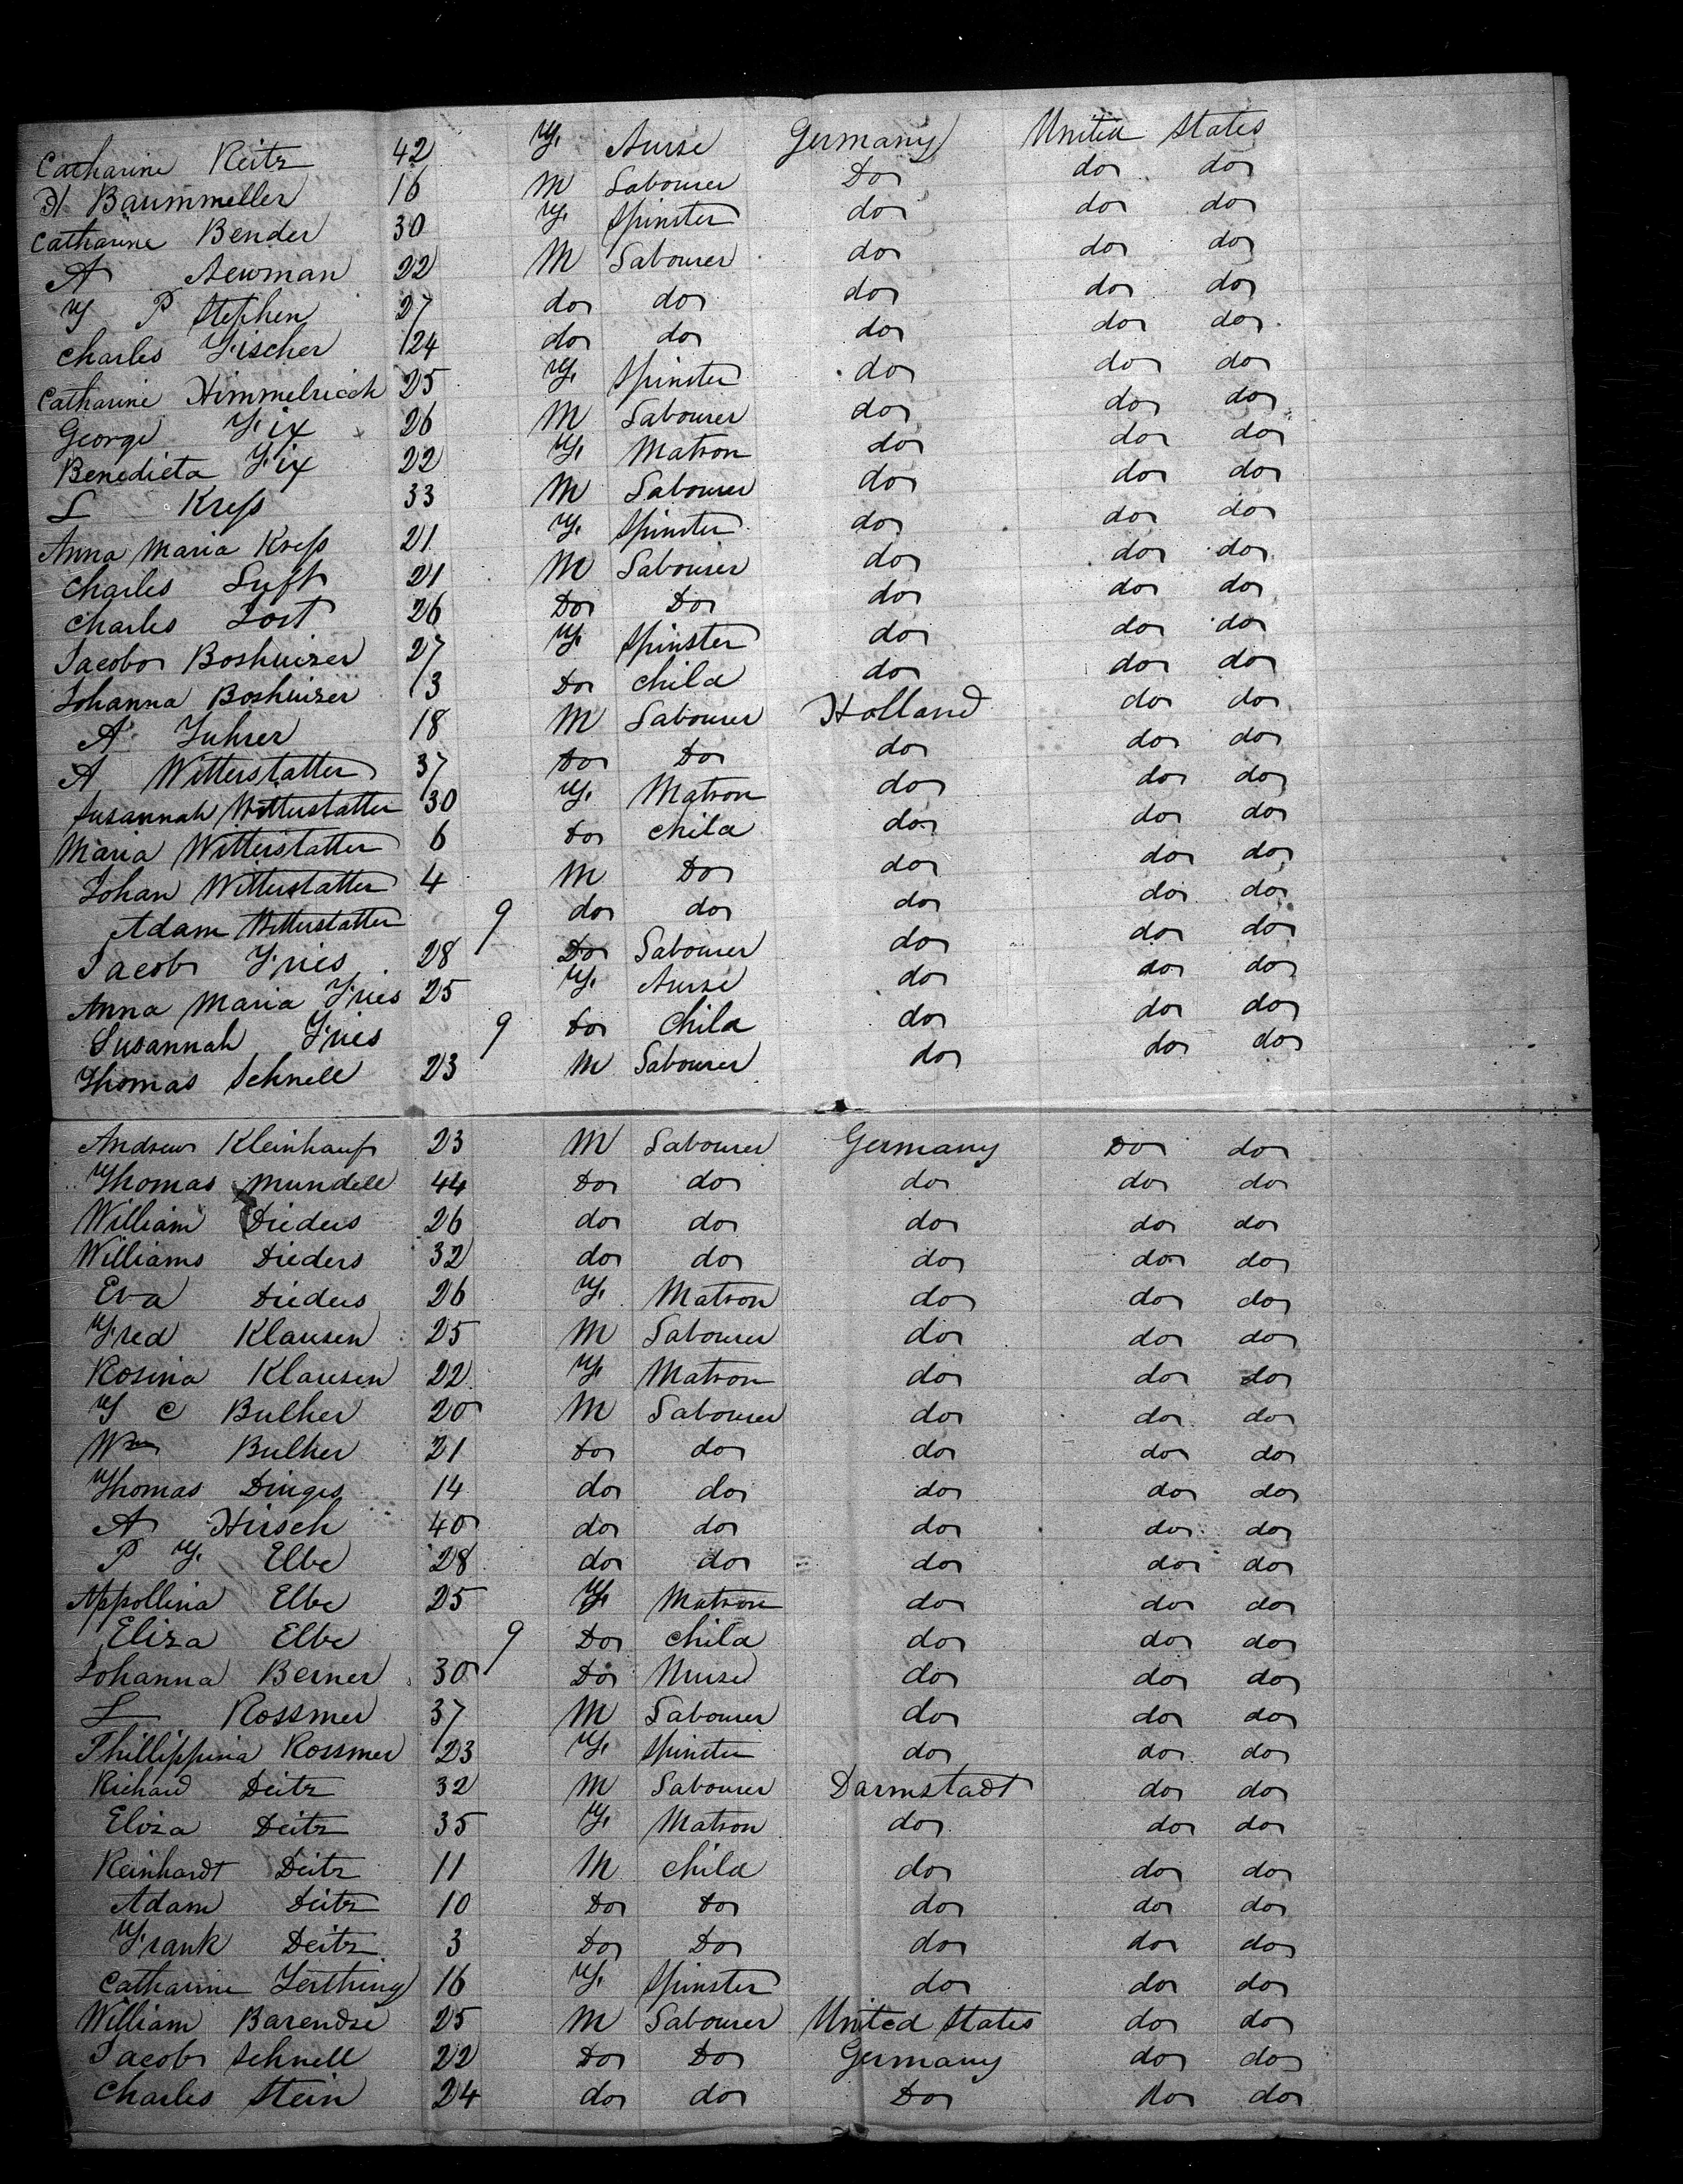 Catharine Reitz 42 F. Nurse Germany United States
H Baummeller 16 M Labourer Do do do
Catharine Bender 30 F. Spinster do do do
A Newman 22 M Labourer do do do
F P Stephen 27 do do do do do
Charles Fischer 24 do do do do do
Catharine Himmelriech 25 F. Spinster do do do
George Fix 26 M Labourer do do do
Benedicta Fix 22 F. Matron do do do
L Kress 33 M Labourer do do do
Anna Maria Kress 21 F. Spinster do do do
Charles Luft 21 M Labourer do do do
Charles Jost 26 Do Do do do do
Jacobo Boshuizer 27 F. Spinster do do do
Johanna Boshuizer 3 Do Child do do do
A Fuhrer 18 M Labourer Holland do do
A Witterstatter 37 Do Do do do do
Susannah Witterstatter 30 F. Matron do do do
Maria Witterstatter 6 Do Child do do do
Johan Witterstatter 4 M Do do do do
Adam Witterstatter 9 do do do do do
Jacob Fries 28 Do Labourer do do do
Anna Maria Fries 25 F. Nurse do do do
Susannah Fries 9 Do Child do do do
Thomas Schnell 23 M Labourer do do do
Andrew Kleinhaus 23 M Labourer Germany Do do
Thomas Mundell 44 Do do do do do
William Dieders 26 do do do do do
Williams Dieders 32 do do do do do
Eva Dieders 26 F. Matron do do do
Fred Klausen 25 M Labourer do do do
Rosina Klausen 22 F. Matron do do do
F C Bulher 20 M Labourer do do do
Wm Bulher 21 Do do do do do
Thomas Dinges 14 do do do do do
A Hirsch 40 do do do do do
P F. Elbe 28 do do do do do
Appollina Elbe 25 F. Matron do do do
Eliza Elbe 9 Do Child do do do
Johanna Berner 30 Do Nurse do do do
L Rossmer 37 M Labourer do do do
Phillippina Rossmer 23 F. Spinster do do do
Richard Deitz 32 M Labourer Darmstadt do do
Eliza Deitz 35 F. Matron do do do
Reinhardt Deitz 11 M Child do do do
Adam Deitz 10 Do Do do do do
Frank Deitz 3 Do Do do do do
Catharine 16 F. Spinster do do do
William Barendse 25 M Labourer United States do do
Jacob Schnell 22 Do Do Germany do do
Charles Stein 24 do do Do do do